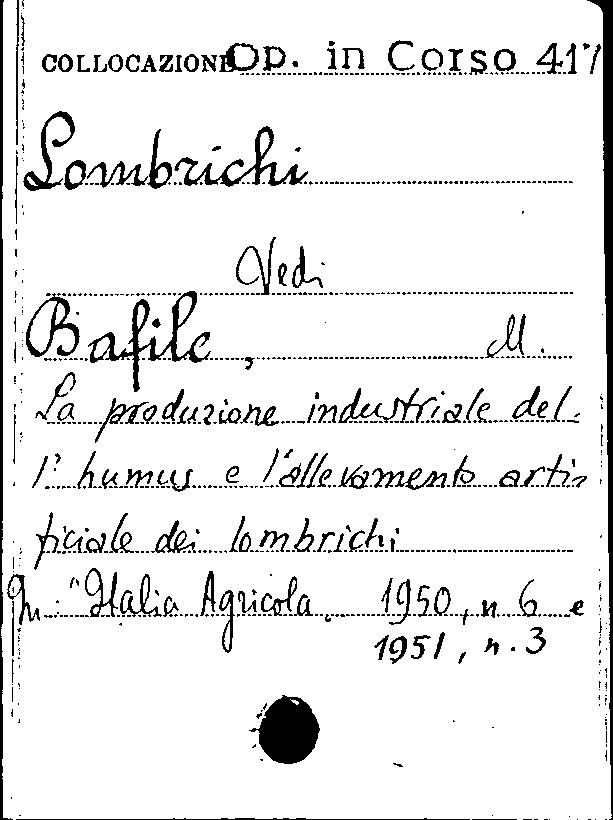 COLLOCAZIONE Op. in Corso 417
Lombrichi
Vedi
Bafile, M.
La produzione industriale del-
l' humus e l'allevamento arti-
ficiale dei lombrichi
In: "Italia Agricola. 1950, n 6 e
1951, n. 3